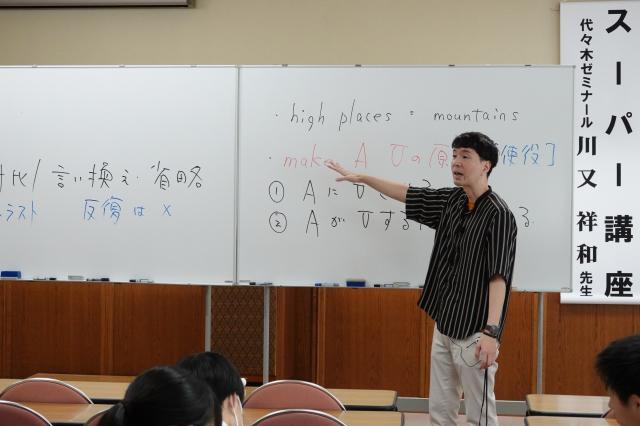 ・high places = mountains
・make A Vの原 使役]
① AにV
② AがVする る
対比/言い換え・省略
ラスト 反復は×
スーパー講座
代々木ゼミナール 川又 祥和 先生